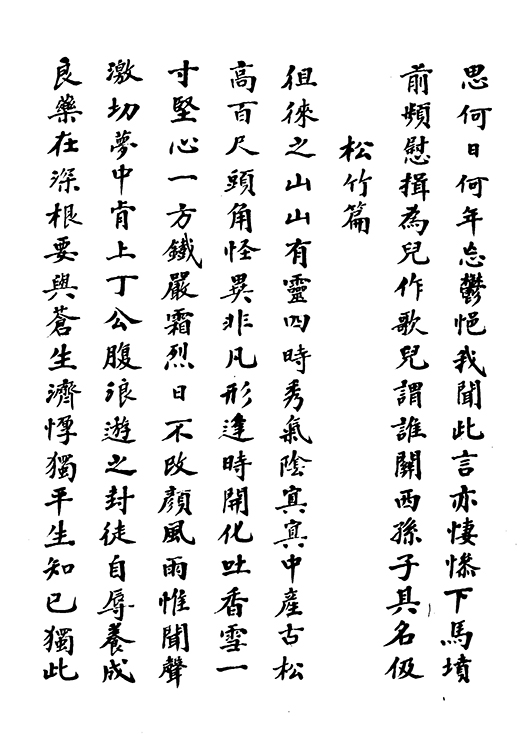 思何日何年忘鬱悒我聞此言亦悽慘下馬墳
前頻慰揖為兒作歌兒謂誰關西孫子具名伋
松竹篇
徂徠之山山有靈四時秀氣陰冥冥中產古松
高百尺頭角怪異非凡形逢時開化吐香雪一
寸堅心一方鐵嚴霜烈日不改顏風雨惟聞聲
激切夢中肯上丁公腹浪遊之封徒自辱養成
良藥在深根要與蒼生濟惸獨平生知己獨此